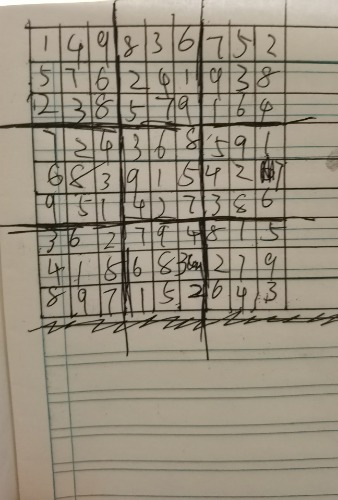 1 4 9 8 3 6 7 5 2
5 7 6 2 4 1 9 3 8
2 3 8 5 7 9 1 6 4
7 2 4 3 6 8 5 9 1
6 8 3 9 1 5 4 2 7
9 5 1 4 2 7 3 8 6
3 6 2 7 9 4 8 1 5
4 1 5 6 8 3 2 7 9
8 9 7 1 5 2 6 4 3